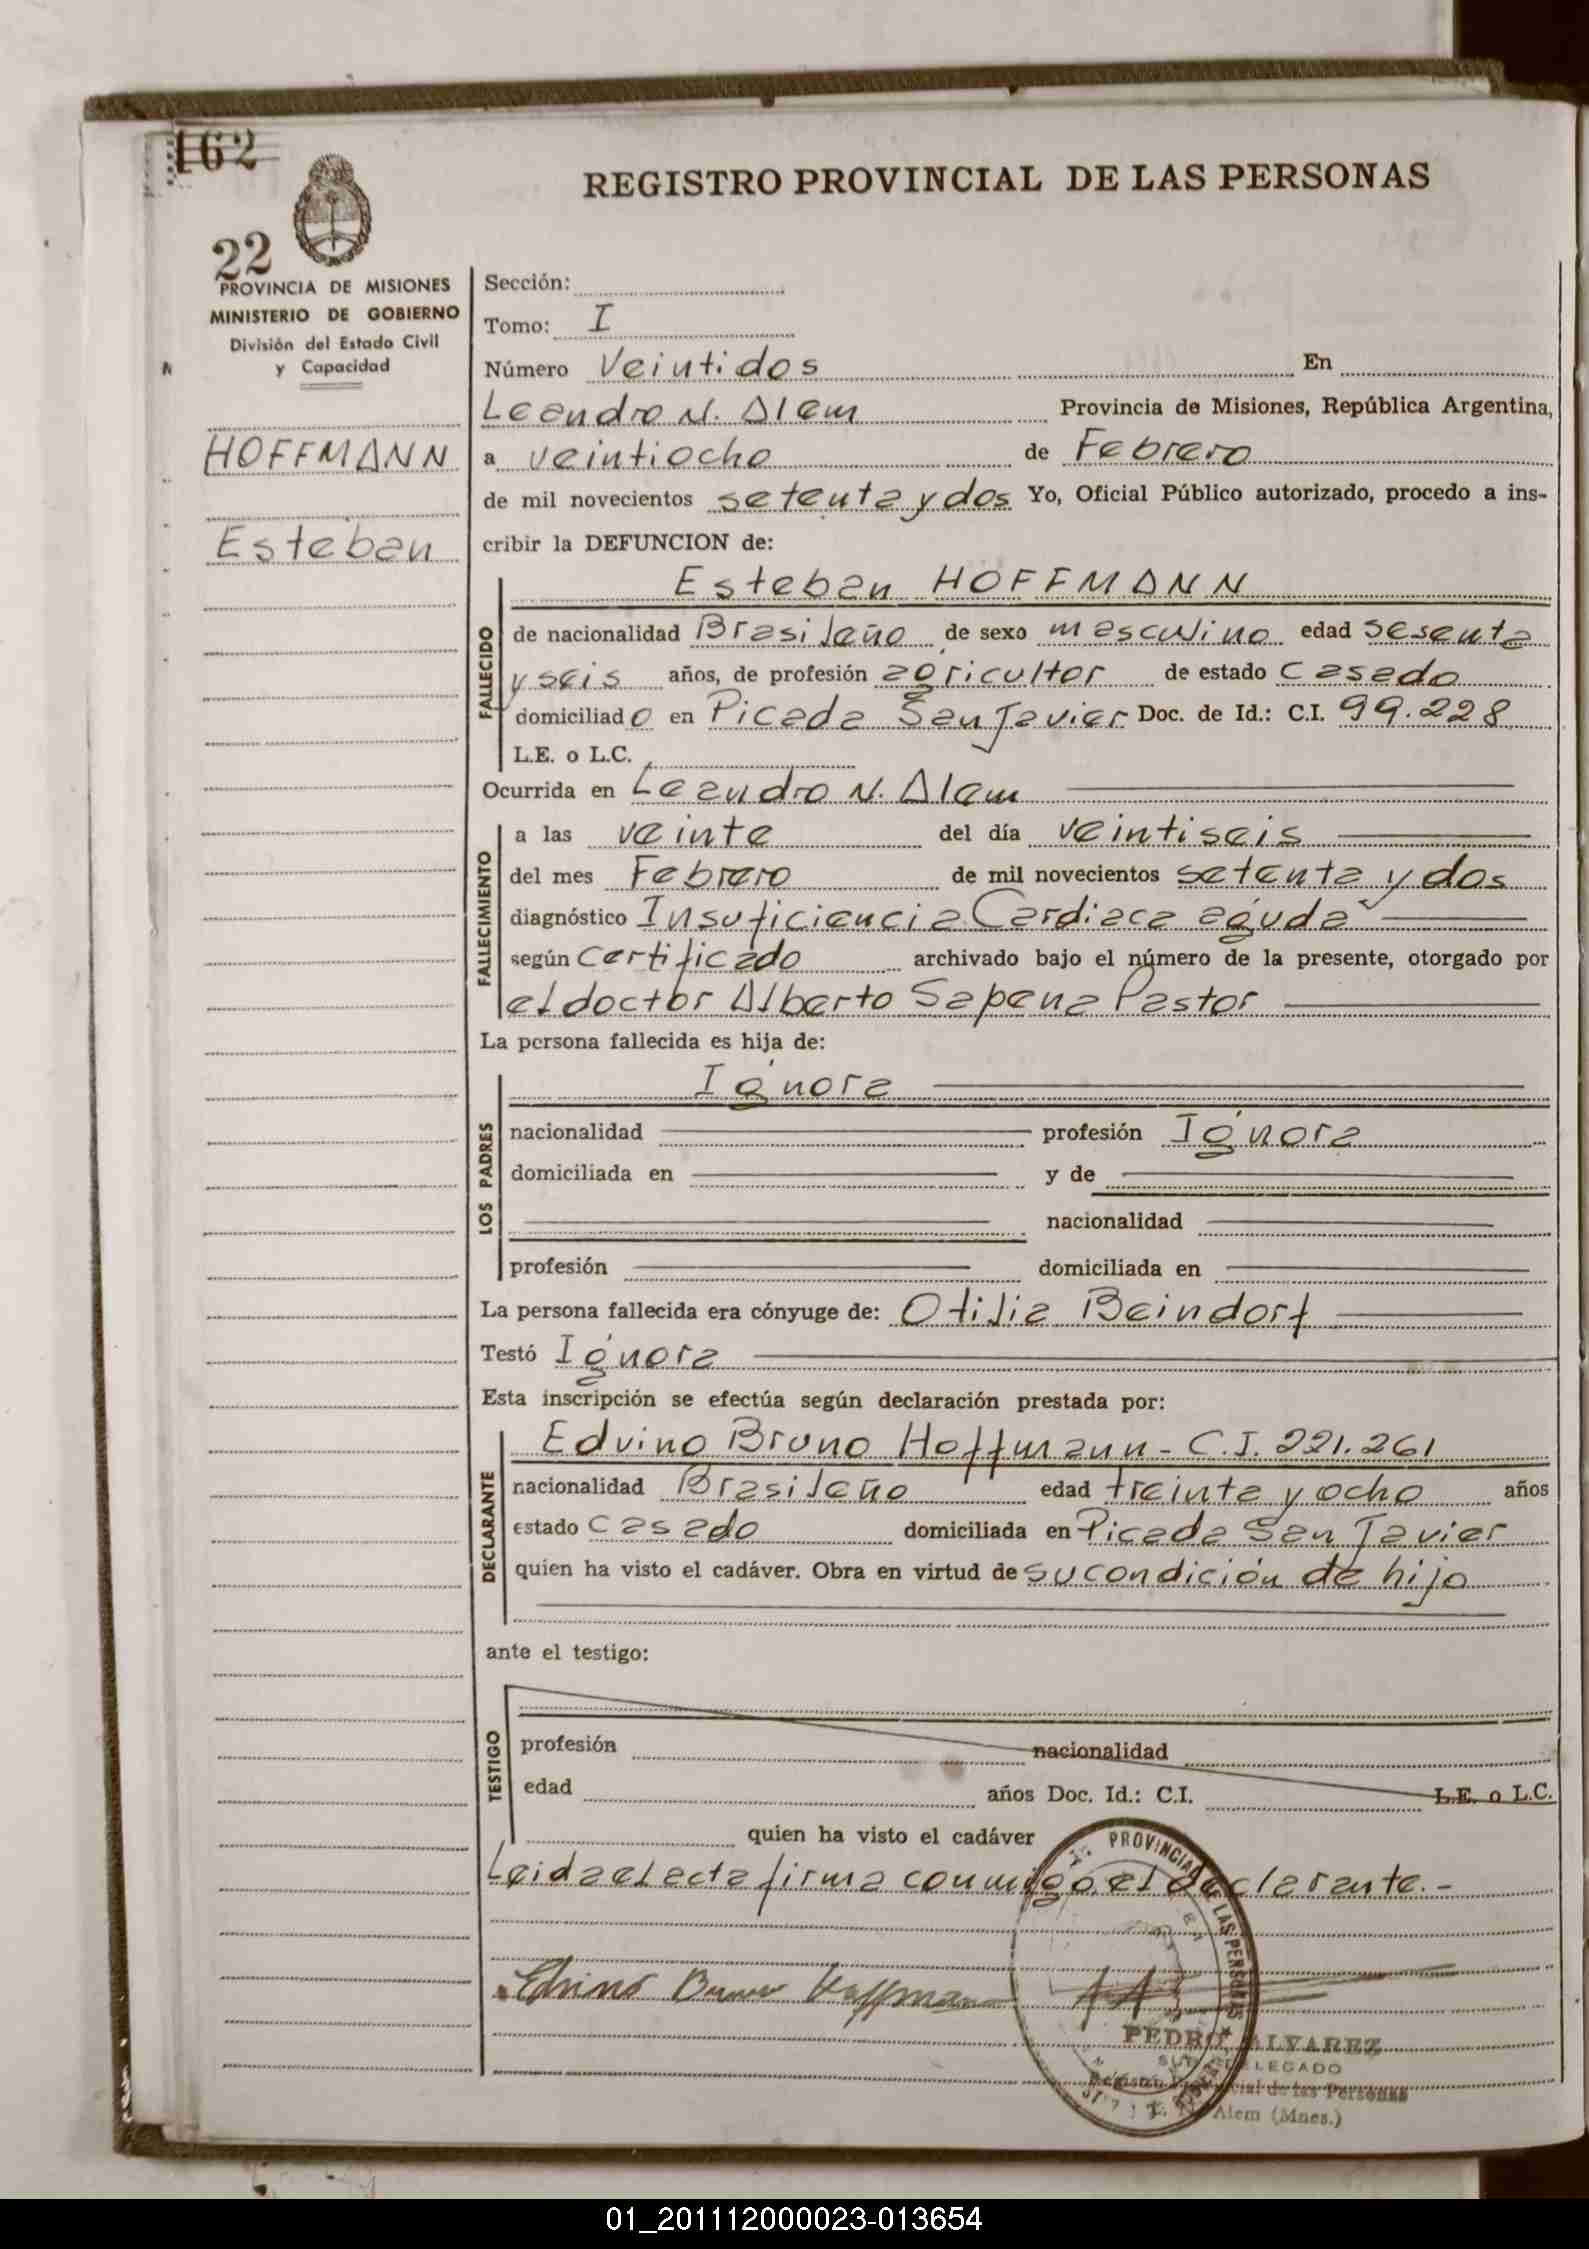 162
REGISTRO PROVINCIAL DE LAS PERSONAS
22
PROVINCIA DE MISIONES
MINISTERIO DE GOBIERNO
División del Estado Civil
y Capacidad
HOFFMANN
Esteban
Sección:
Tomo: I
Número Veintidos En
Leandro N. Alem Provincia de Misiones, República Argentina,
a veintiocho de Febrero
de mil novecientos setenta y dos Yo, Oficial Público autorizado, procedo a ins-
cribir la DEFUNCION de:
FALLECIDO
Esteban HOFFMANN
de nacionalidad Brasileño de sexo masculino edad sesenta
y seis años, de profesión agricultor de estado casado
domiciliado en Picada San Javier Doc. de Id.: C.I. 99.228
L.E. o L.C.
Ocurrida en Leandro N. Alem
FALLECIMIENTO
a las veinte del día veintiseis
del mes Febrero de mil novecientos setenta y dos
diagnóstico Insuficiencia Cardiaca aguda
según certificado archivado bajo el número de la presente, otorgado por
el doctor Alberto Sapena Pastor
La persona fallecida es hija de:
LOS PADRES
Ignora
nacionalidad profesión Ignora
domiciliada en y de
nacionalidad
profesión domiciliada en
La persona fallecida era cónyuge de: Otilia Beindorf
Testó Ignora
Esta inscripción se efectúa según declaración prestada por:
DECLARANTE
Edvino Bruno Hoffmann - C.I. 221.261
nacionalidad Brasileño edad treinta y ocho años
estado casado domiciliada en Picada San Javier
quien ha visto el cadáver. Obra en virtud de su condición de hijo
ante el testigo:
TESTIGO
profesión nacionalidad
edad años Doc. Id.: C.I. L.E. o L.C.
quien ha visto el cadáver
Leida el acta firma conmigo el declarante.-
Edvino Bruno Hoffmann
PROVINCIAL DE LAS PERSONAS
PEDRO ALVAREZ
SUB DELEGADO
Registro Provincial de las Personas
L. N. Alem (Mnes.)
01_201112000023-013654